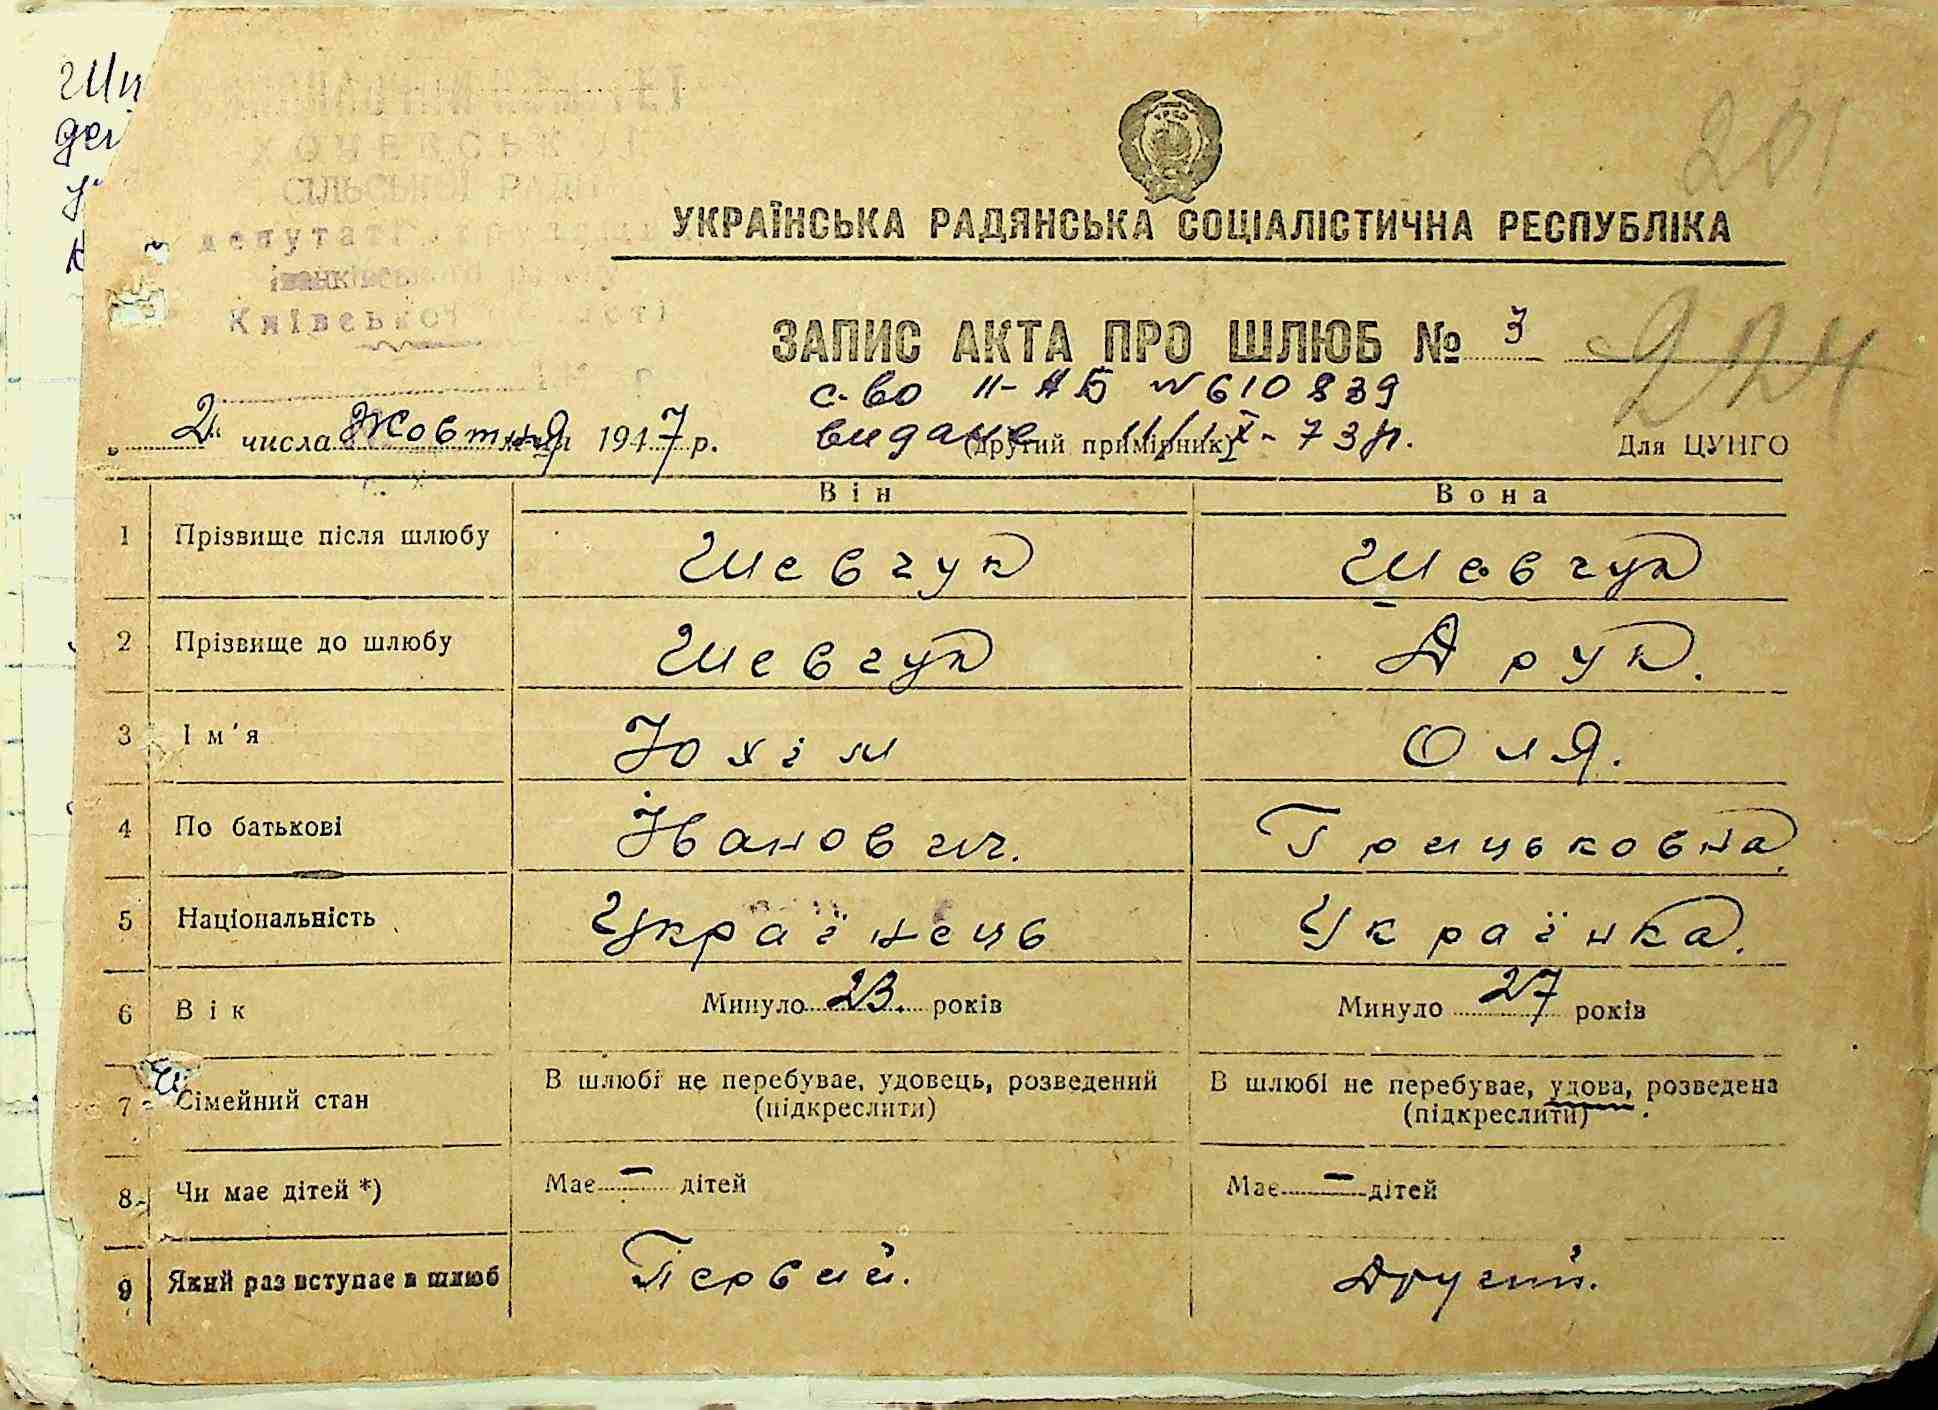 201
ХОЧЕВСЬКОЇ
СІЛЬСЬКОЇ РАДИ
депутатів трудящих
іванківського району
Київської області
УКРАЇНСЬКА РАДЯНСЬКА СОЦІАЛІСТИЧНА РЕСПУБЛІКА
ЗАПИС АКТА ПРО ШЛЮБ № 3
224
с-во II-АБ № 610839
видане 11/IX-73р.
„2“ числа Жовтня 1947 р. (другий примірник) Для ЦУНГО
Він Вона
1 Прізвище після шлюбу Шевчук Шевчук
2 Прізвище до шлюбу Шевчук Друк.
3 Ім'я Юхім Оля.
4 По батькові Іванович. Грицьковна
5 Національність Українець Українка.
6 Вік Минуло 23. років Минуло 27 років
7 Сімейний стан В шлюбі не перебуває, удовець, розведений (підкреслити) В шлюбі не перебуває, удова, розведена (підкреслити)
8 Чи має дітей *) Має — дітей Має — дітей
9 Який раз вступає в шлюб Первий. Другий.